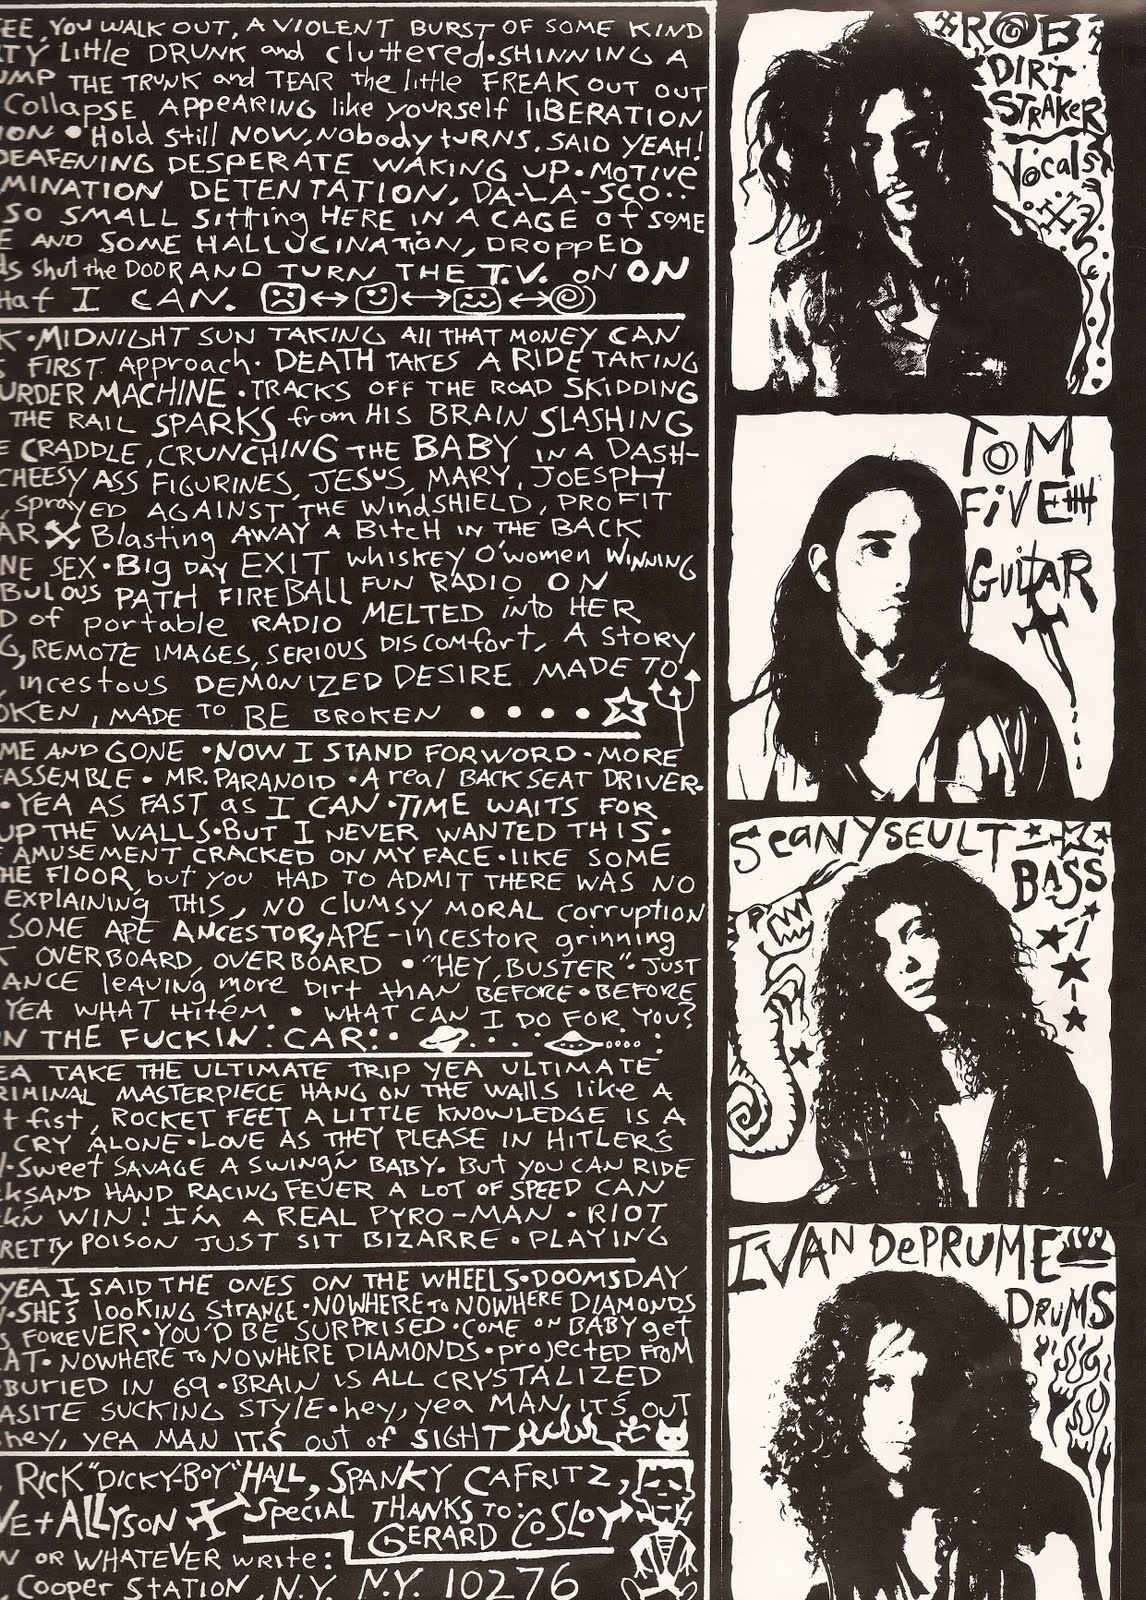 EE, YOU WALK OUT, A VIOLENT BURST OF SOME KIND
TY Little DRUNK and cluttered • SHINNING A
UMP THE TRUNK and TEAR the little FREAK OUT OUT
Collapse APPEARING like yourself LIBERATION
ION • Hold still NOW, Nobody TURNS, SAID YEAH!
DEAFENING DESPERATE WAKING UP • MOTIVE
MINATION DETENTATION, DA-LA-SCO..
SO SMALL sittting HERE IN A CAGE of SOME
E AND SOME HALLUCINATION, DROPPED
ds shut the DOOR AND TURN THE T.V. ON ON
hat I CAN.
K • MIDNIGHT SUN TAKING All THAT MONEY CAN
S FIRST Approach • DEATH TAKES A RIDE TAKING
URDER MACHINE • TRACKS OFF THE ROAD SKIDDING
THE RAIL SPARKS from HIS BRAIN SLASHING
E CRADDLE, CRUNCHING THE BABY IN A DASH-
CHEESY ASS FIGURINES, JESUS, MARY, JOESPH
, sprayED AGAINST THE WindSHIELD, PROFIT
AR Blasting AWAY A BITCH IN THE BACK
NE SEX • Big DAY EXIT whiskey O'women WINNING
BULOUS PATH FIREBALL FUN RADIO ON
D of portable RADIO MELTED into HER
G, REMOTE IMAGES, SERIOUS DISCOMfort, A STORY
, incestous DEMONIZED DESIRE MADE TO
OKEN, MADE TO BE BROKEN • • • •
ME AND GONE • NOW I STAND FORWORD • MORE
ASSEMBLE • MR. PARANOID • A real BACK SEAT DRIVER •
• YEA AS FAST as I CAN • TIME WAITS FOR
UP THE WALLS • BUT I NEVER WANTED THIS •
AMUSEMENT CRACKED ON MY FACE • LIKE SOME
HE FLOOR, but you HAD TO ADMIT THERE WAS NO
EXPLAINING THIS, NO Clumsy MORAL corruption
SOME APE ANCESTOR, APE-INCESTOR grinning
OVERBOARD, OVERBOARD • "HEY, BUSTER" • JUST
ANCE leaving more DIRT than BEFORE • BEFORE
YEA WHAT Hitém • WHAT CAN I DO FOR YOU?
N THE FUCKIN' CAR:
EA TAKE THE ULTIMATE TRIP YEA ULTIMATE
RIMINAL MASTERPIECE HANG ON THE WALLS like A
t fist, ROCKET FEET A LITTLE KNOWLEDGE IS A
CRY ALONE • LOVE AS THEY PLEASE IN HITLER'S
• Sweet SAVAGE A SWING'N BABY. BUT YOU CAN RIDE
CKSAND HAND RACING FEVER A LOT OF SPEED CAN
CK'N WIN! I'M A REAL PYRO-MAN • RIOT
RETTY POISON JUST SIT BIZARRE • PLAYING
YEA I SAID THE ONES ON THE WHEELS • DOOMSDAY
• SHE'S looking STRANGE • NOWHERE TO NOWHERE DIAMONDS
S FOREVER • YOU'D BE SURPRISED • COME ON BABY get
AT • NOWHERE TO NOWHERE DIAMONDS • projected FROM
• BURIED IN 69 • BRAIN IS ALL CRYSTALIZED
ASITE SUCKING STYLE • hey, yea MAN, IT'S OUT
hey, yea MAN IT'S out of SIGHT
, RICK "DICKY-BOY" HALL, SPANKY CAFRITZ,
VE + ALLYSON Special THANKS TO:
GERARD COSLOY
N OR WHATEVER write:
, Cooper STATION, N.Y. N.Y. 10276
ROB
DIRT
STRAKER
Vocals
TOM
FiVE
GUITAR
SEAN YSEULT
BASS
IVAN DePRUME
DRUMS